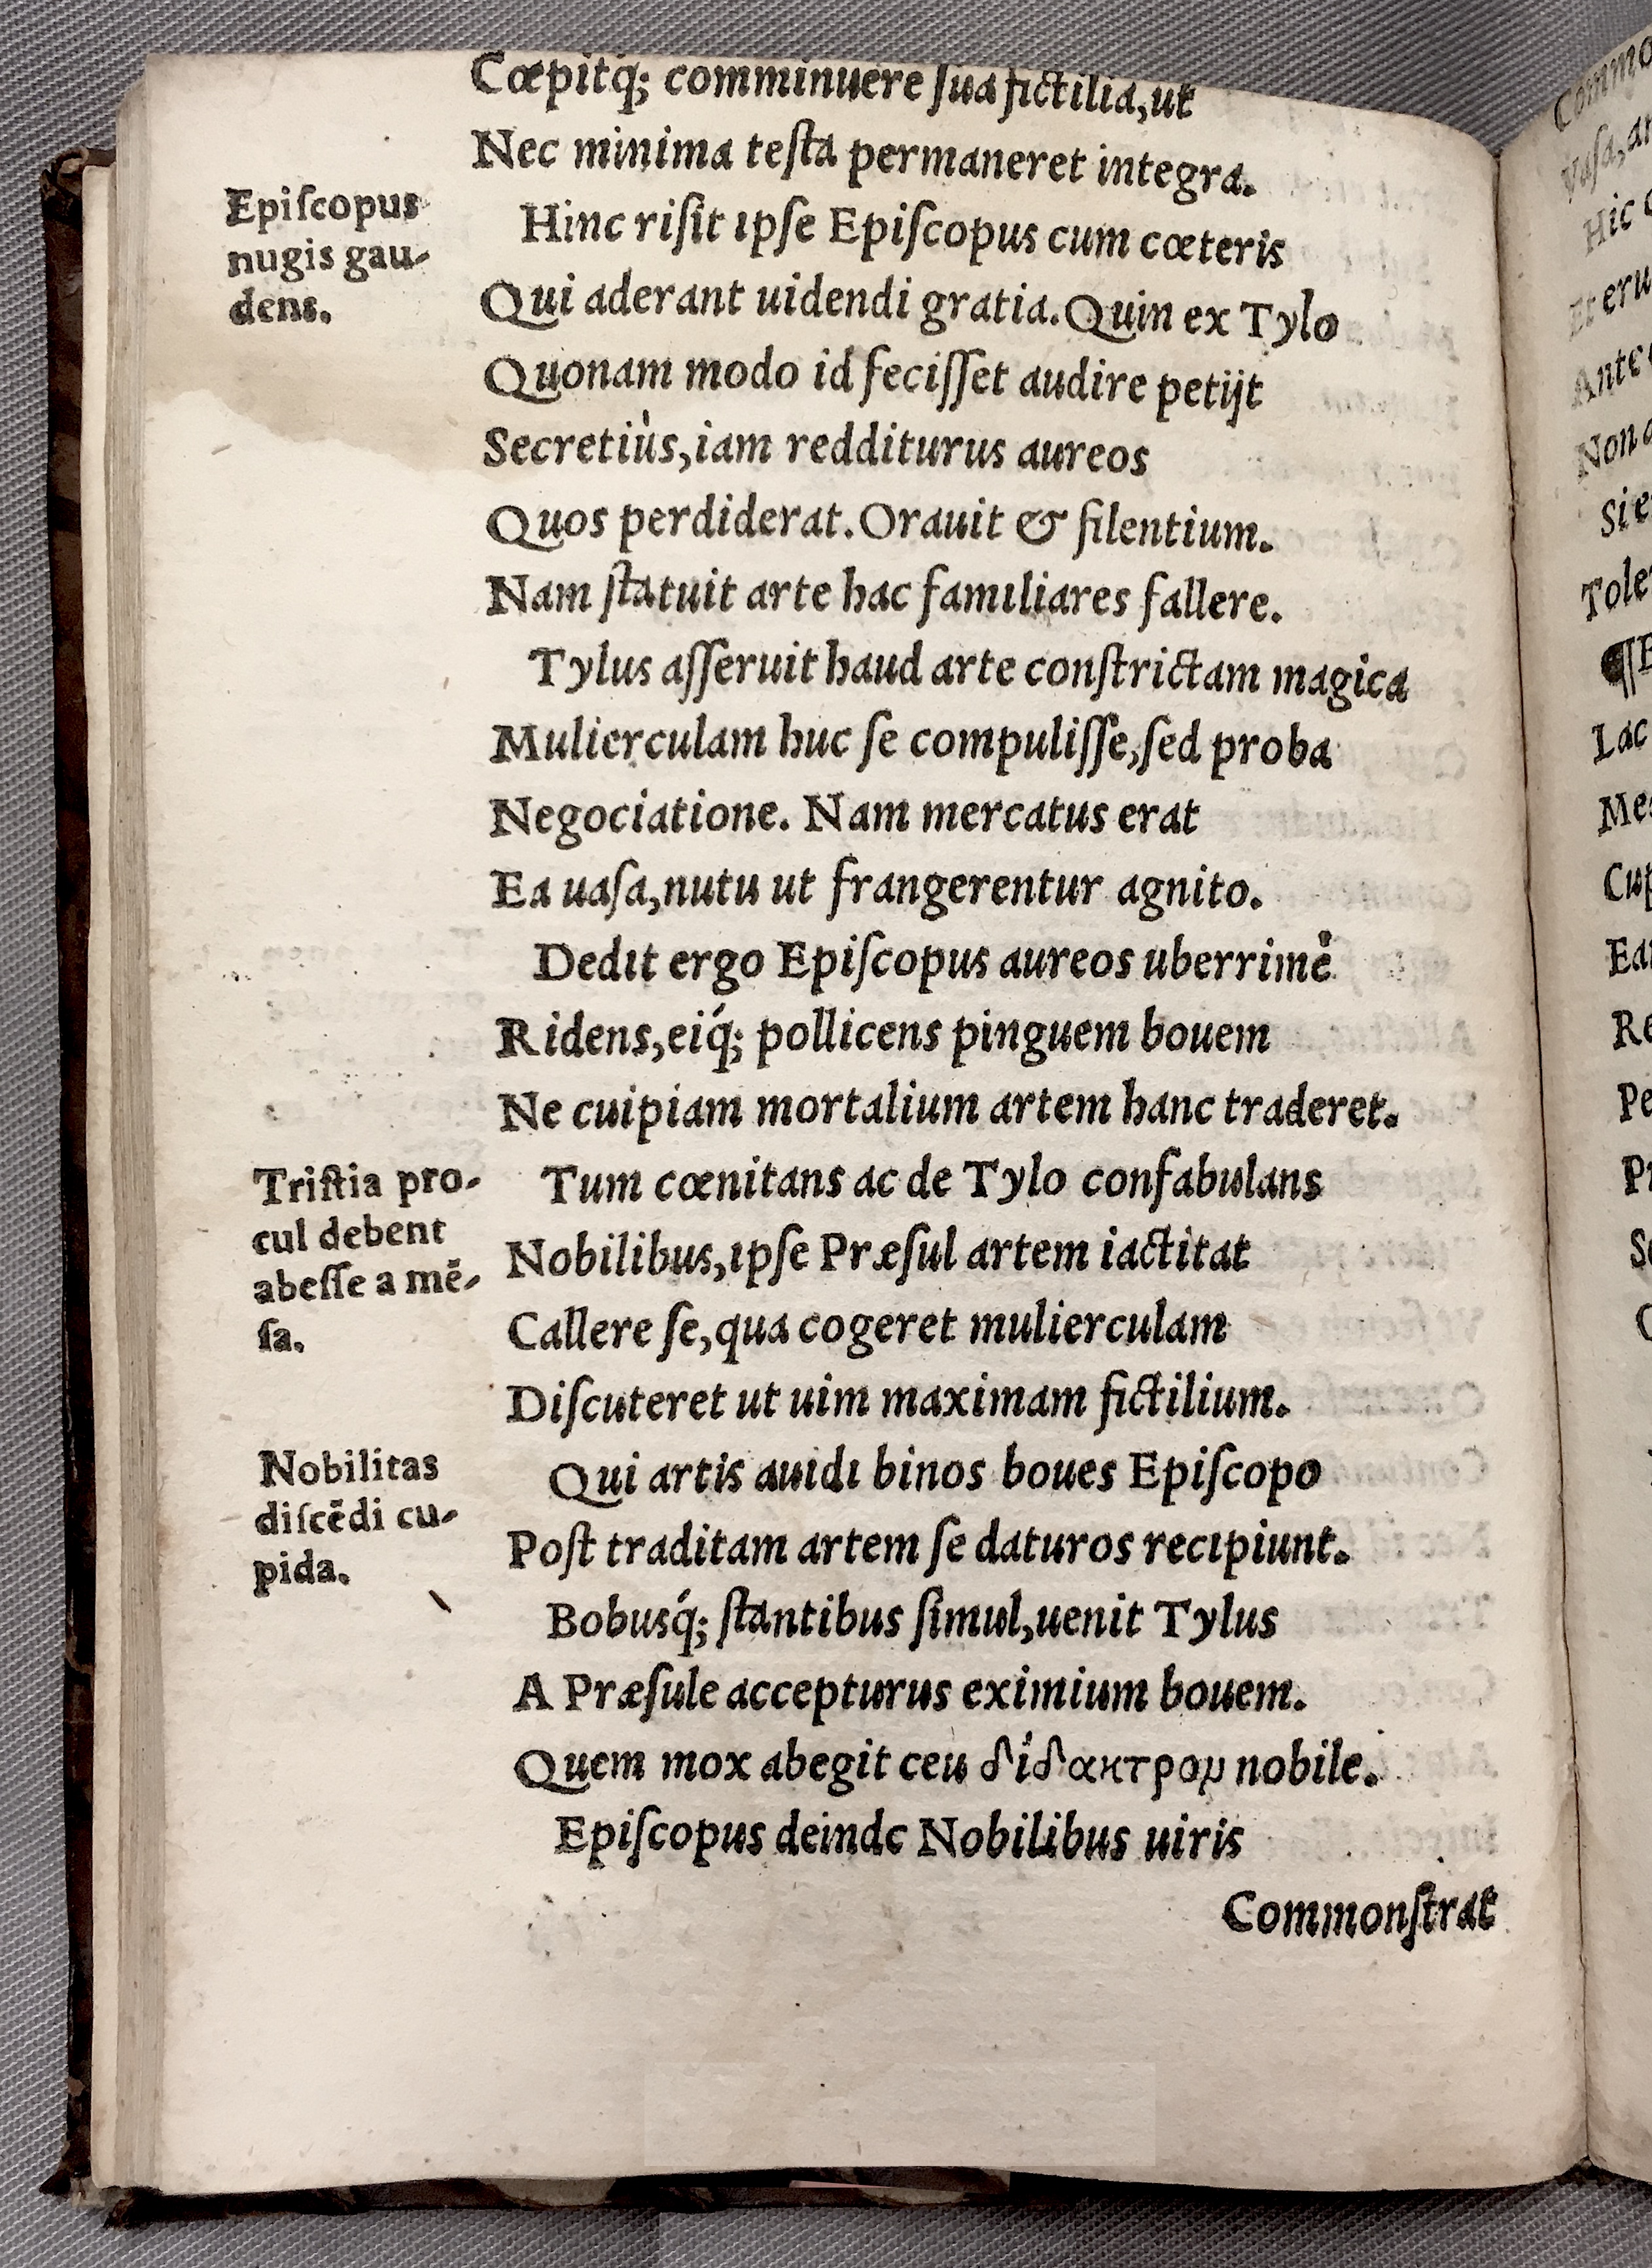 Cœpitq́; comminuere ſua fictilia,ut
Nec minima teſta permaneret integra.
Epiſcopus
nugis gau-
dens.
Hinc riſit ipſe Epiſcopus cum cœteris
Qui aderant uidendi gratia.Quin ex Tylo
Quonam modo id feciſſet audire petijt
Secretiùs,iam redditurus aureos
Quos perdiderat.Orauit & ſilentium.
Nam ſtatuit arte hac familiares fallere.
Tylus aſſeruit haud arte conſtrictam magica
Mulierculam huc ſe compuliſſe,ſed proba
Negociatione. Nam mercatus erat
Ea uaſa,nutu ut frangerentur agnito.
Dedit ergo Epiſcopus aureos uberrimè
Ridens,eiq́; pollicens pinguem bouem
Ne cuipiam mortalium artem hanc traderet.
Triſtia pro-
cul debent
abeſſe a mē-
ſa.
Tum cœnitans ac de Tylo confabulans
Nobilibus,ipſe Præſul artem iactitat
Callere ſe,qua cogeret mulierculam
Diſcuteret ut uim maximam fictilium.
Nobilitas
diſcēdi cu-
pida.
Qui artis auidi binos boues Epiſcopo
Poſt traditam artem ſe daturos recipiunt.
Bobusq́; ſtantibus ſimul,uenit Tylus
A Præſule accepturus eximium bouem.
Quem mox abegit ceu δίδακτρομ nobile.
Epiſcopus deinde Nobilibus uiris
Commonſtrat
Vaſa,
Hic
Et eru
Ante
Non
Si
Tole
¶E
Lac
Me
Cup
Ea
Re
Pe